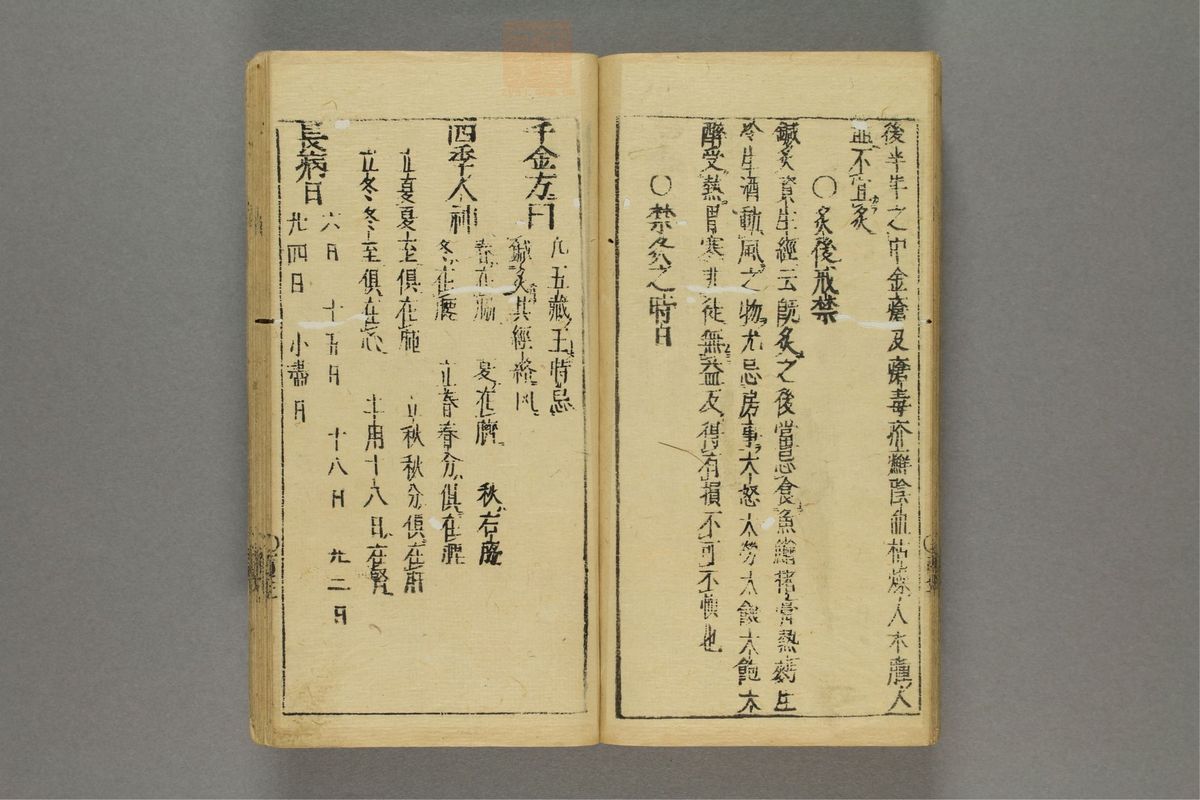 後半年之中金瘡及癰毒疥癬陰血枯燥人木虛人
並不宜灸
〇灸後戒禁
鍼灸資生經云既灸之後當忌食魚鱠猪膏熱麪生
冷生酒動風之物尤忌房事大怒大勞大飢大飽大
醉受熱冒寒非徒無益反得有損不可不慎也
〇禁灸之時日
千金方曰 凡五藏王時忌
鍼灸其經絡凡
四季人神 春在 夏在臍 秋右脇
冬在腰 立春春分俱在脾
立夏夏至俱在 立秋秋分俱在
立冬冬至俱在心 土用十八日在腎
長病日 六日 十五日 十八日 廿二日
廿四日 小盡日